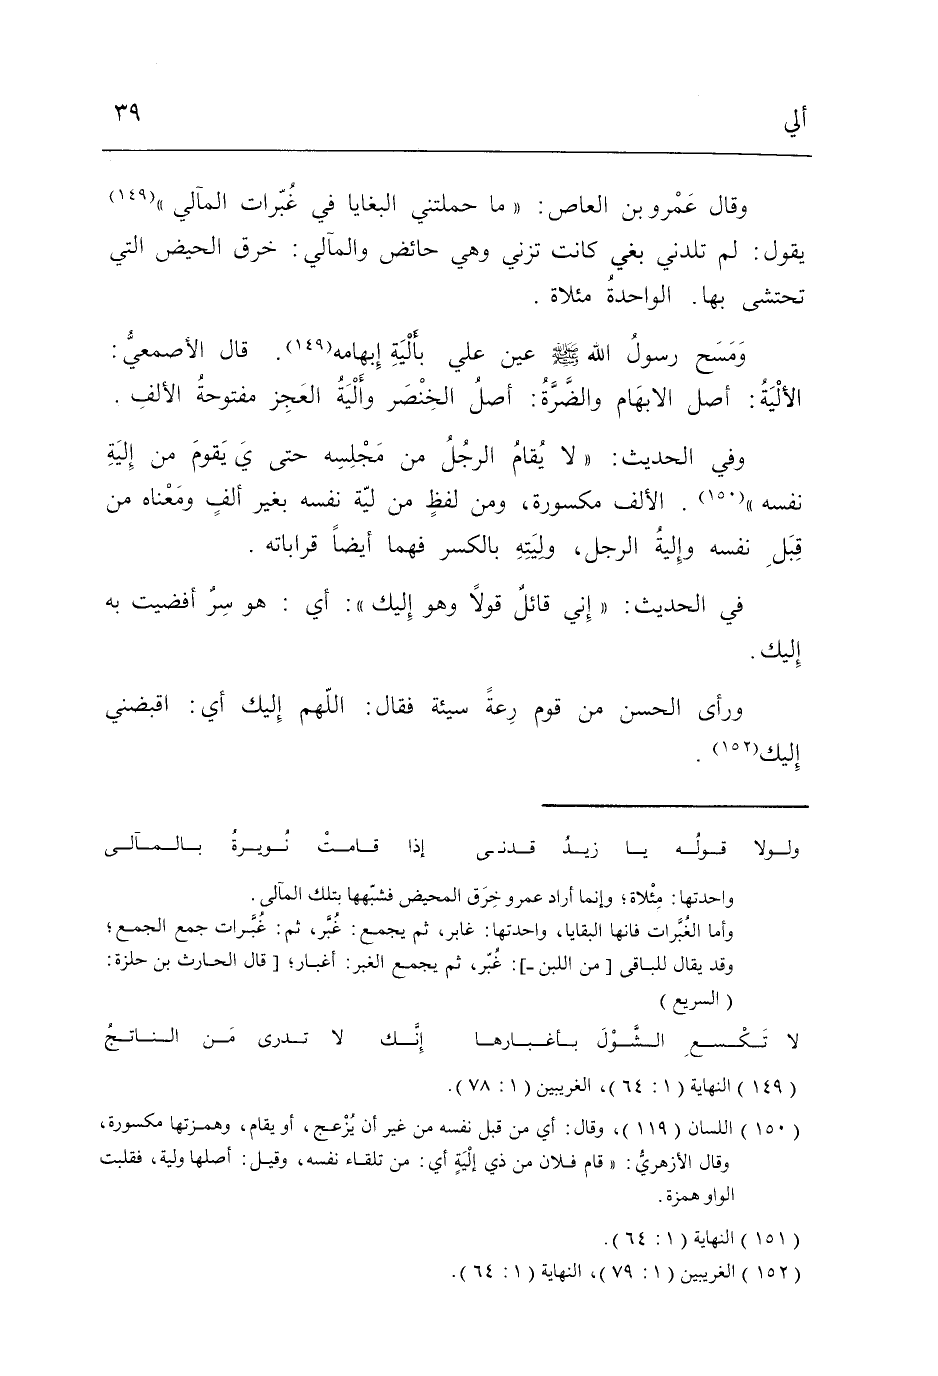 ألي ٣٩
وقال عَمْرو بن العاص: « ما حملتني البغايا في غُبّرات المآلي »(١٤٩)
يقول: لم تلدني بغي كانت تزني وهي حائض والمآلي: خرق الحيض التي
تحتشى بها. الواحدةُ مئلاة .
وَمَسَح رسولُ الله ﷺ عين علي بأَلْيَةِ إبهامه(١٤٩). قال الأصمعيُّ:
الألْيَةُ: أصل الابهَام والضَّرَّةُ: أصلُ الخِنْصَر وأَلْيَةُ العَجِز مفتوحةُ الألفِ .
وفي الحديث: « لا يُقامُ الرجُلُ من مَجْلِسِه حتى يَ يَقومَ من إليَةِ
نفسه »(١٥٠) . الألف مكسورة، ومن لفظٍ من ليّة نفسه بغير ألفٍ ومَعْناه من
قِبَلِ نفسه وإليةُ الرجل، ولِيَتِهِ بالكسر فهما أيضاً قراباته .
في الحديث: « إني قائلٌ قولاً وهو إليك »: أي : هو سِرٌ أفضيت به
إليك.
ورأى الحسن من قوم رِعةً سيئة فقال: اللّهم إليك أي: اقبضني
إليك(١٥٢) .
ولولا قولُه يا زيدُ قدنى إذا قامتْ نُويرةُ بالمآلى
واحدتها: مِئْلاة؛ وإنما أراد عمرو خِرَق المحيض فشبّهها بتلك المآلى.
وأما الغُبَّرات فانها البقايا، واحدتها: غابر، ثم يجمع: غُبَّر، ثم: غُبَّرات جمع الجمع؛
وقد يقال للباقى [ من اللبن -]: غُبّر، ثم يجمع الغبر: أغبار؛ [ قال الحارث بن حلزة:
( السريع )
لا تَكْسعِ الشَّوْلَ بأغبارها إنَّك لا تدرى مَن الناتجُ
( ١٤٩ ) النهاية ( ١ : ٦٤ )، الغريبين ( ١ : ٧٨ ).
( ١٥٠ ) اللسان ( ١١٩ )، وقال: أي من قبل نفسه من غير أن يُزْعج، أو يقام، وهمزتها مكسورة،
وقال الأزهريُّ: « قام فلان من ذي إلْيَةٍ أي: من تلقاء نفسه، وقيل: أصلها ولية، فقلبت
الواو همزة.
( ١٥١ ) النهاية ( ١ : ٦٤ ).
( ١٥٢ ) الغريبين ( ١ : ٧٩ )، النهاية ( ١ : ٦٤ ).